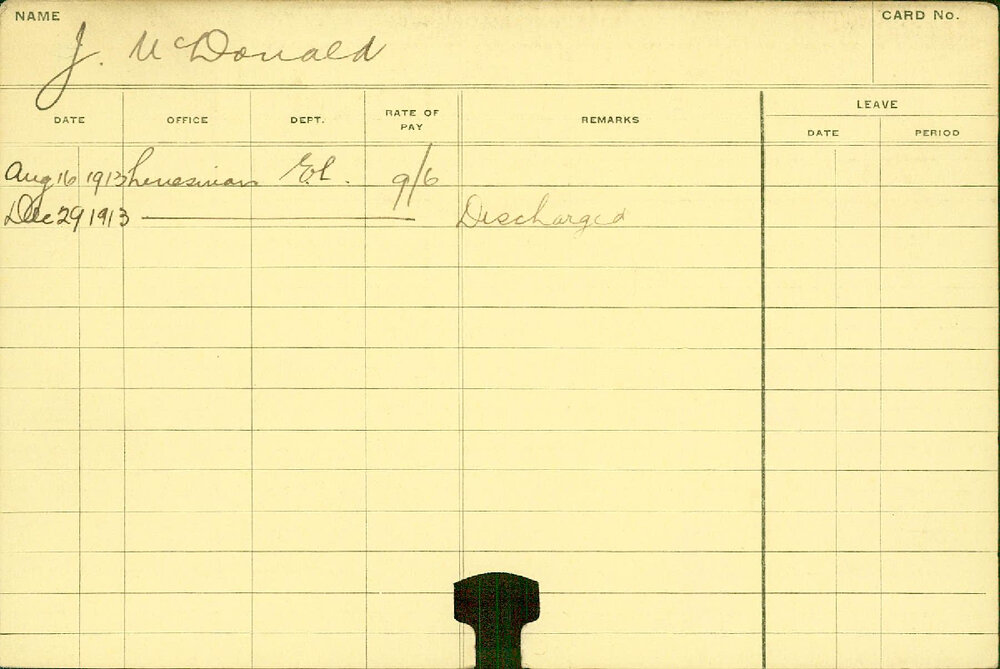 NAME
CARD No.
J. McDonald
DATE OFFICE DEPT. RATE OF PAY REMARKS LEAVE
DATE PERIOD
Aug 16 1913 Linesman El. 9/6
Dec 29 1913 Discharged